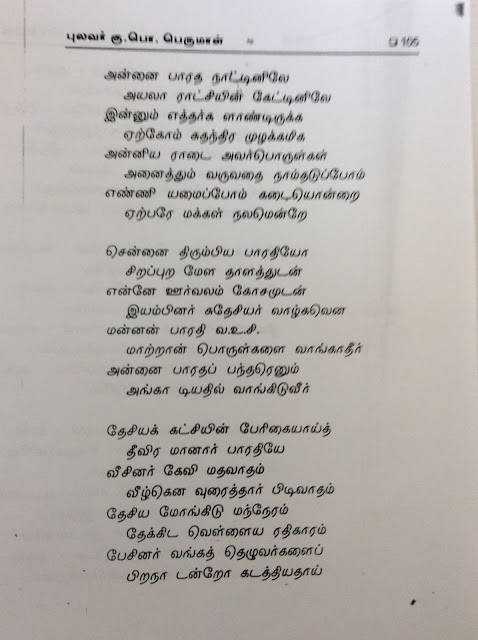 புலவர் கு.பொ. பெருமாள்
166
அன்னை பாரத நாட்டினிலே
அயலா ராட்சியின் கேட்டினிலே
இன்னும் எத்தர்க ளாண்டிருக்க
ஏற்கோம் சுதந்திர முழக்கமிக
அன்னிய ராடை அவர்பொருள்கள்
அனைத்தும் வருவதை நாம்தடுப்போம்
எண்ணி யமைப்போம் கடையொன்றை
ஏற்பரே மக்கள் நலமென்றே
சென்னை திரும்பிய பாரதியோ
சிறப்புற மேள தாளத்துடன்
என்னே ஊர்வலம் கோசமுடன்
இயம்பினர் சுதேசியர் வாழ்கவென
மன்னன் பாரதி வ.உ.சி.
மாற்றான் பொருள்களை வாங்காதீர்
அன்னை பாரதப் பந்தரெனும்
அங்கா டியதில் வாங்கிடுவீர்
தேசியக் கட்சியின் பேரிகையாய்த்
தீவிர மானார் பாரதியே
வீசினர் கேவி மதவாதம்
வீழ்கென வுரைத்தார் பிடிவாதம்
தேசிய மோங்கிடு மந்நேரம்
தேக்கிட வெள்ளைய ரதிகாரம்
பேசினர் வங்கத் தெழுவர்களைப்
பிறநா டன்றோ கடத்தியதாய்